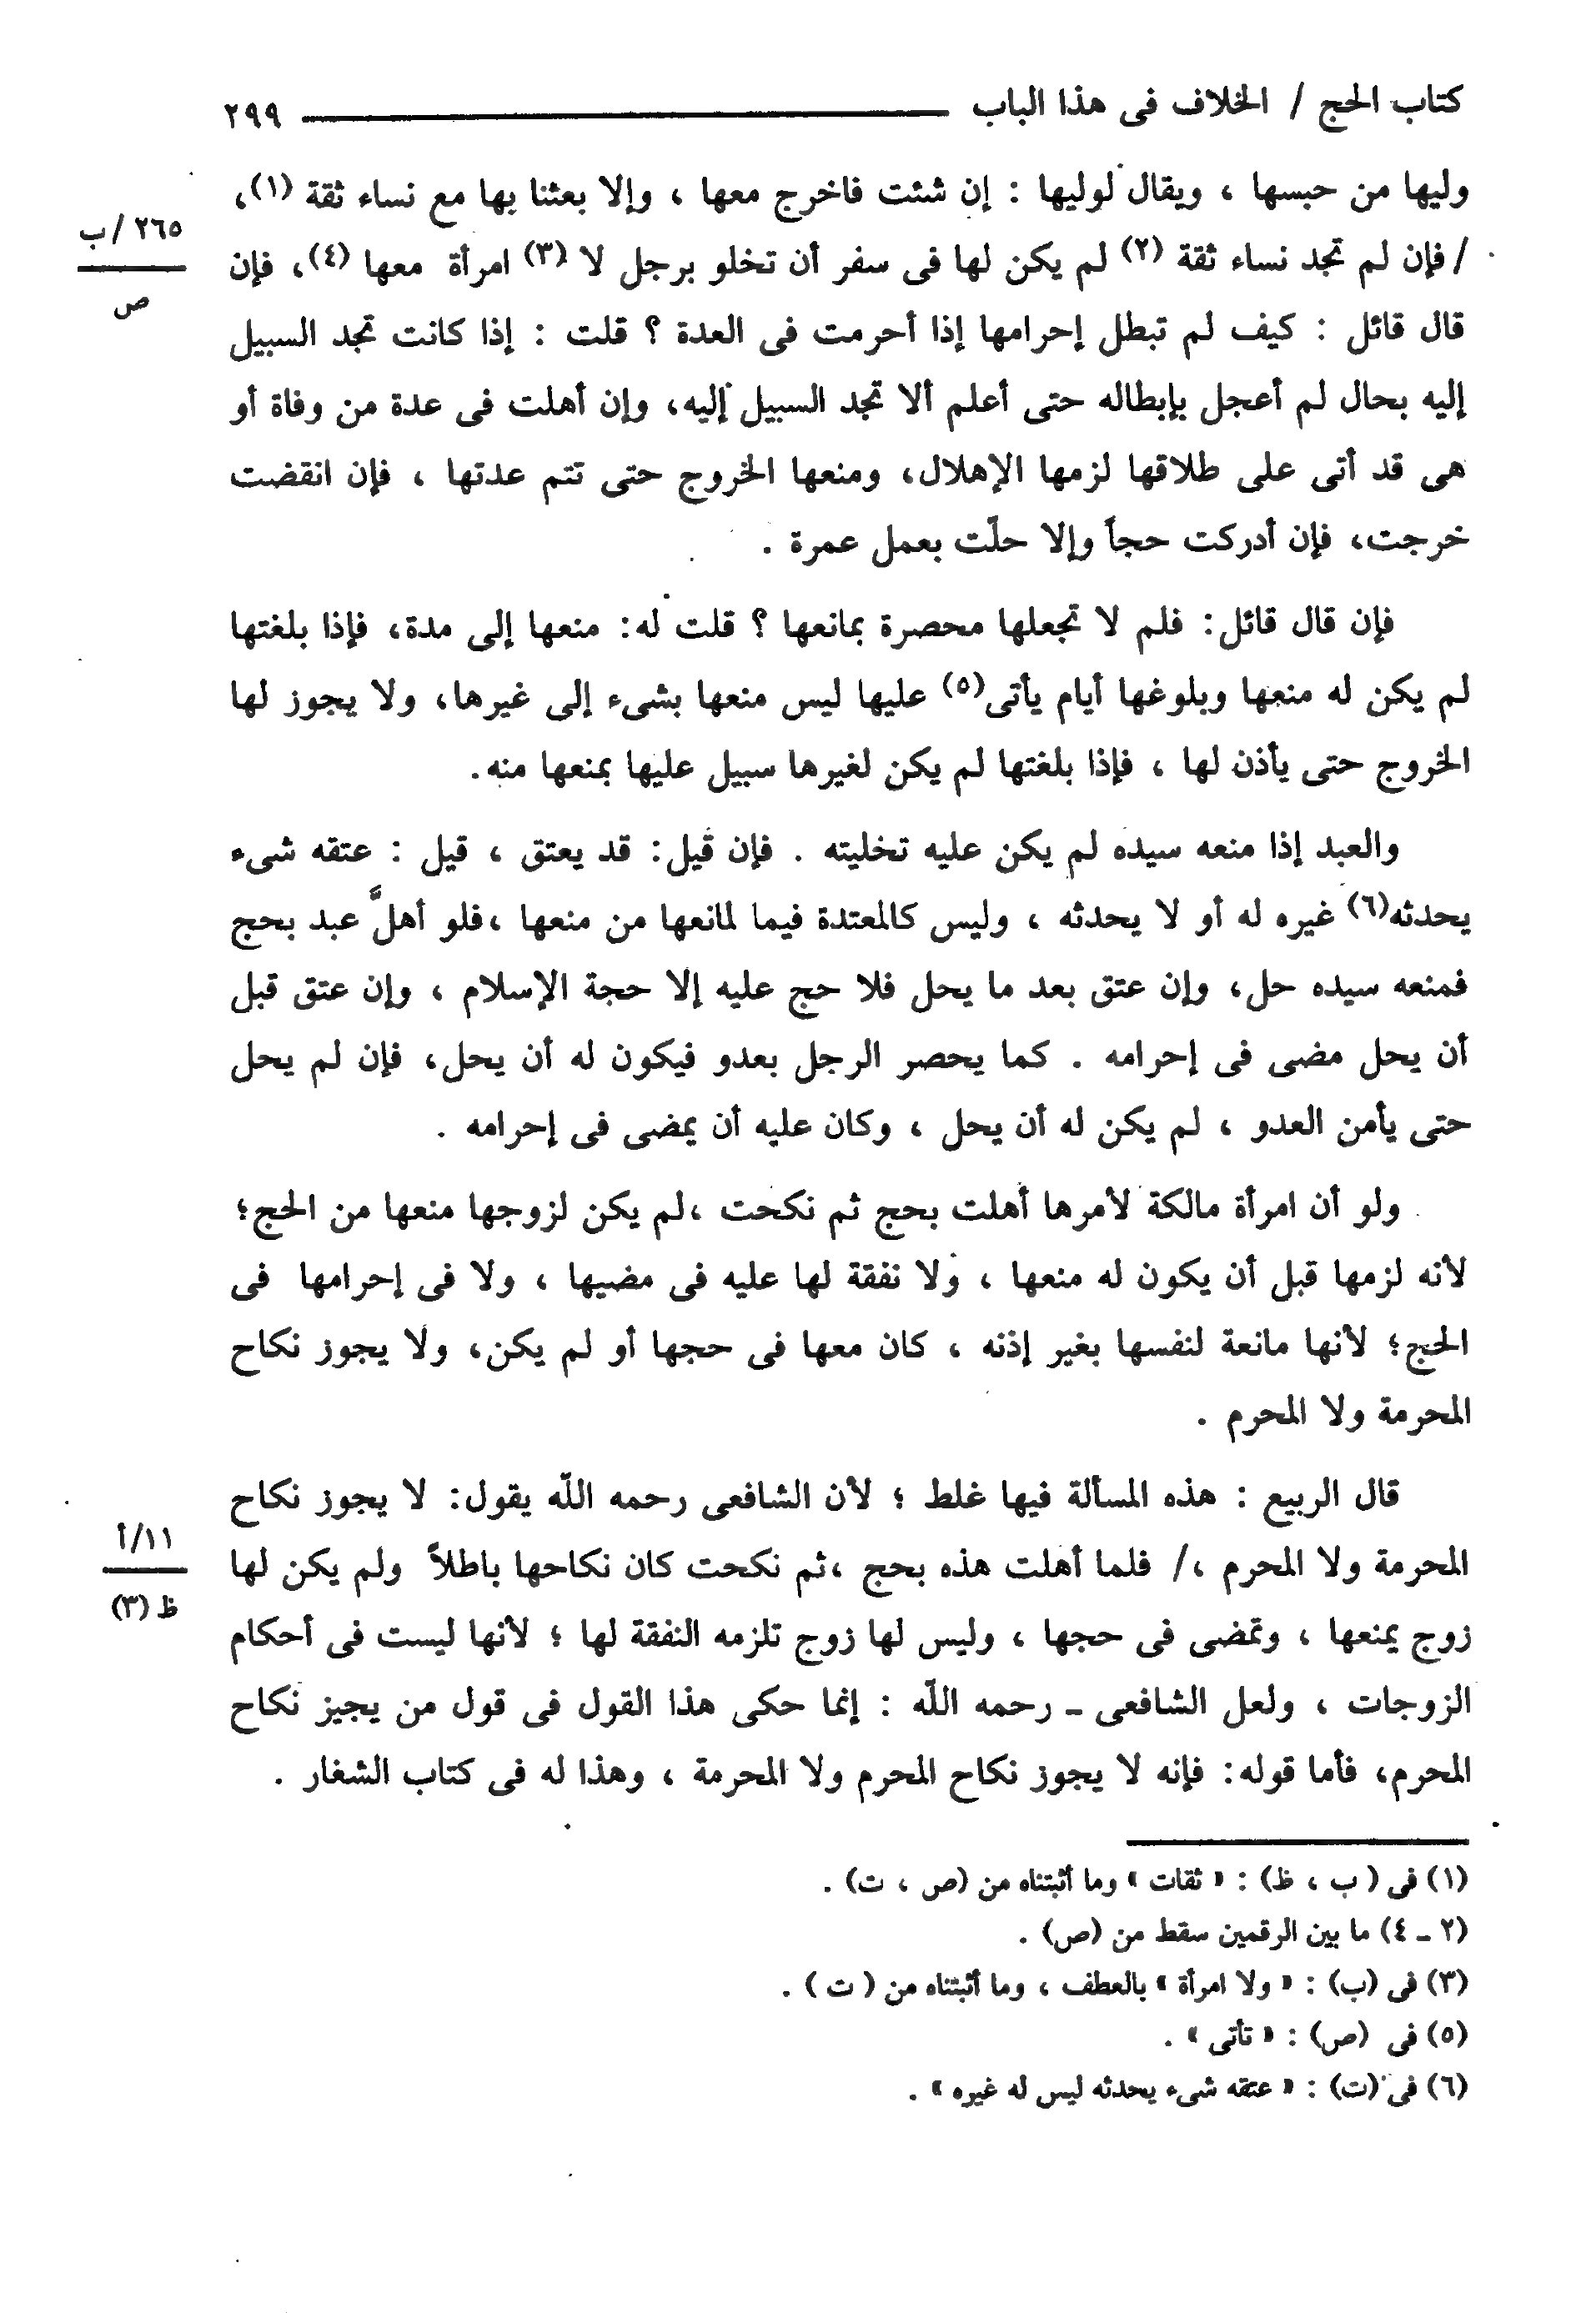 كتاب الحج / الخلاف فى هذا الباب ٢٩٩
وليها من حبسها ، ويقال لوليها : إن شئت فاخرج معها ، وإلا بعثنا بها مع نساء ثقة (١)،
/ فإن لم تجد نساء ثقة (٢) لم يكن لها فى سفر أن تخلو برجل لا (٣) امرأة معها (٤)، فإن
٢٦٥ /ب
ص
قال قائل : كيف لم تبطل إحرامها إذا أحرمت فى العدة ؟ قلت : إذا كانت تجد السبيل
إليه بحال لم أعجل بإبطاله حتى أعلم ألا تجد السبيل إليه، وإن أهلت فى عدة من وفاة أو
هى قد أتى على طلاقها لزمها الإهلال، ومنعها الخروج حتى تتم عدتها ، فإن انقضت
خرجت، فإن أدركت حجاً وإلا حلّت بعمل عمرة .
فإن قال قائل: فلم لا تجعلها محصرة بمانعها ؟ قلت له: منعها إلى مدة، فإذا بلغتها
لم يكن له منعها وبلوغها أيام يأتى(٥) عليها ليس منعها بشىء إلى غيرها، ولا يجوز لها
الخروج حتى يأذن لها ، فإذا بلغتها لم يكن لغيرها سبيل عليها بمنعها منه.
والعبد إذا منعه سيده لم يكن عليه تخليته . فإن قيل: قد يعتق ، قيل : عتقه شىء
يحدثه(٦) غيره له أو لا يحدثه ، وليس كالمعتدة فيما لمانعها من منعها ،فلو أهلَّ عبد بحج
فمنعه سيده حل، وإن عتق بعد ما يحل فلا حج عليه إلا حجة الإسلام ، وإن عتق قبل
أن يحل مضى فى إحرامه . كما يحصر الرجل بعدو فيكون له أن يحل، فإن لم يحل
حتى يأمن العدو ، لم يكن له أن يحل ، وكان عليه أن يمضى فى إحرامه .
ولو أن امرأة مالكة لأمرها أهلت بحج ثم نكحت ،لم يكن لزوجها منعها من الحج؛
لأنه لزمها قبل أن يكون له منعها ، ولا نفقة لها عليه فى مضيها ، ولا فى إحرامها فى
الحج؛ لأنها مانعة لنفسها بغير إذنه ، كان معها فى حجها أو لم يكن، ولا يجوز نكاح
المحرمة ولا المحرم .
قال الربيع : هذه المسألة فيها غلط ؛ لأن الشافعى رحمه اللّه يقول: لا يجوز نكاح
١١/أ
ظ (٣)
المحرمة ولا المحرم ،/ فلما أهلت هذه بحج ،ثم نكحت كان نكاحها باطلاً ولم يكن لها
زوج يمنعها ، وتمضى فى حجها ، وليس لها زوج تلزمه النفقة لها ؛ لأنها ليست فى أحكام
الزوجات ، ولعل الشافعى ـ رحمه اللّه : إنما حكى هذا القول فى قول من يجيز نكاح
المحرم، فأما قوله: فإنه لا يجوز نكاح المحرم ولا المحرمة ، وهذا له فى كتاب الشغار .
(١) فى ( ب ، ظ) : « ثقات » وما أثبتناه من (ص ، ت) .
(٢ ـ ٤) ما بين الرقمين سقط من (ص) .
(٣) فى (ب) : « ولا امرأة » بالعطف ، وما أثبتناه من ( ت ) .
(٥) فى (ص) : « تأتى » .
(٦) فى (ت) : « عتقه شىء يحدثه ليس له غيره » .